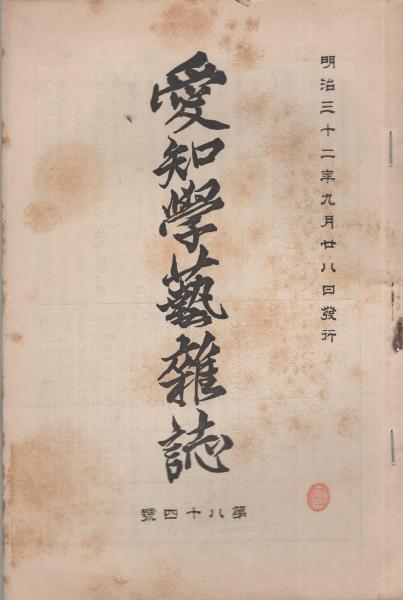 明治三十二年九月廿八日發行
愛知學藝雜誌
第八十四號